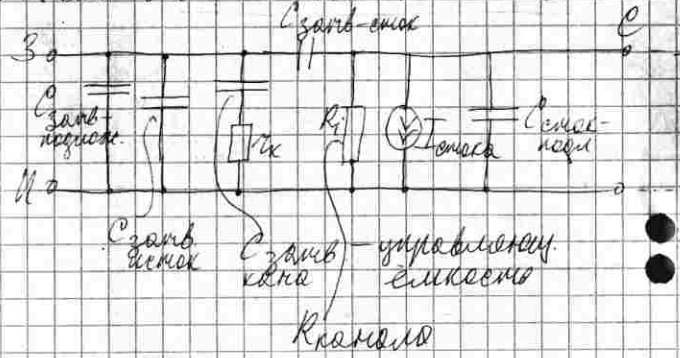 Cзатв-сток
З
С
C
затв-
подлож.
rк
Ri
Iстока
Cсток-
подл
И
Cзатв.
исток
Cзатв
кана
— управляющ.
ёмкость
Rканала